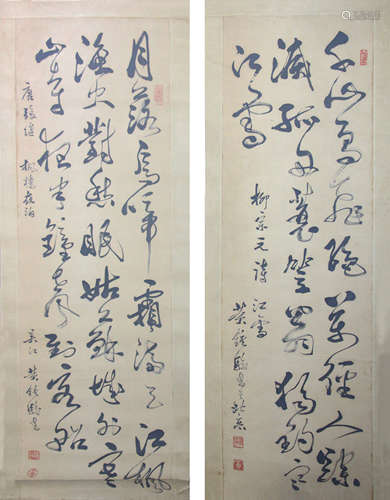 千山鳥飛絕萬徑人蹤
滅孤舟蓑笠翁獨釣寒
江雪
柳宗元詩 江雪
月落烏啼霜滿天江楓
漁火對愁眠姑蘇城外寒
山寺夜半鐘聲到客船
唐張繼 楓橋夜泊
吳江 黃